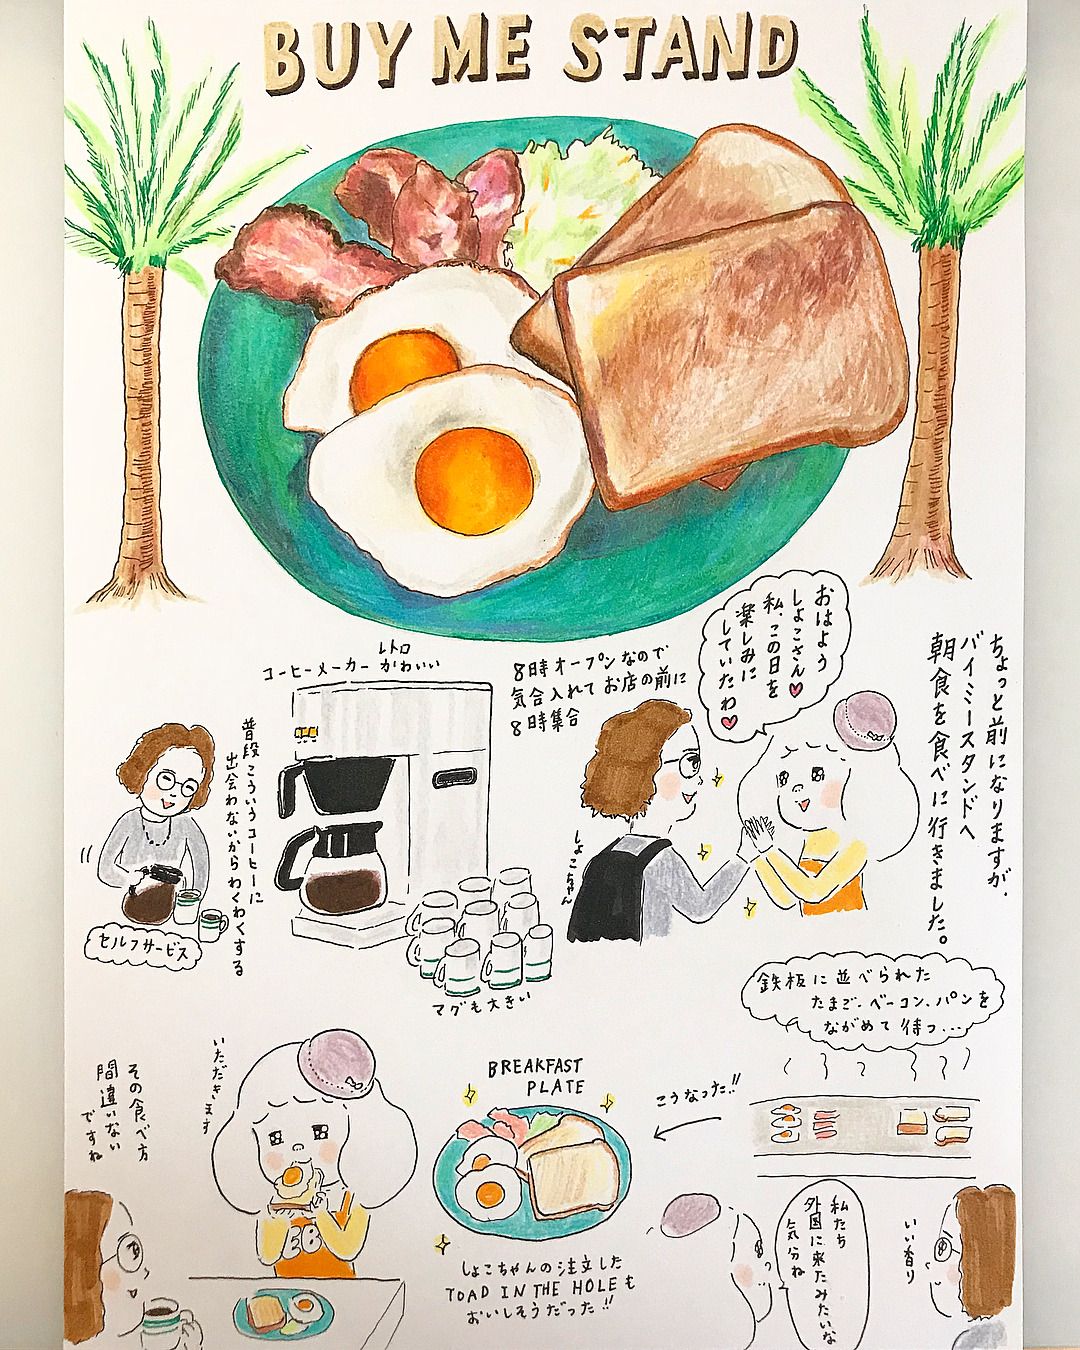 BUY ME STAND
ちょっと前になりますが、
バイミースタンドへ
朝食を食べに行きました。
おはよう
しょこさん
私、この日を
楽しみに
していたわ
8時オープンなので
気合入れてお店の前に
8時集合
しょこちゃん
レトロ
コーヒーメーカー かわいい
普段こういうコーヒーに
出会わないからわくわくする
セルフサービス
マグも大きい
鉄板に並べられた
たまご、ベーコン、パンを
ながめて待つ...
こうなった!!
BREAKFAST
PLATE
いただきます
その食べ方
間違いない
ですね
EB
しょこちゃんの注文した
TOAD IN THE HOLEも
おいしそうだった!!
私たち
外国に来たみたいな
気分ね
いい香り